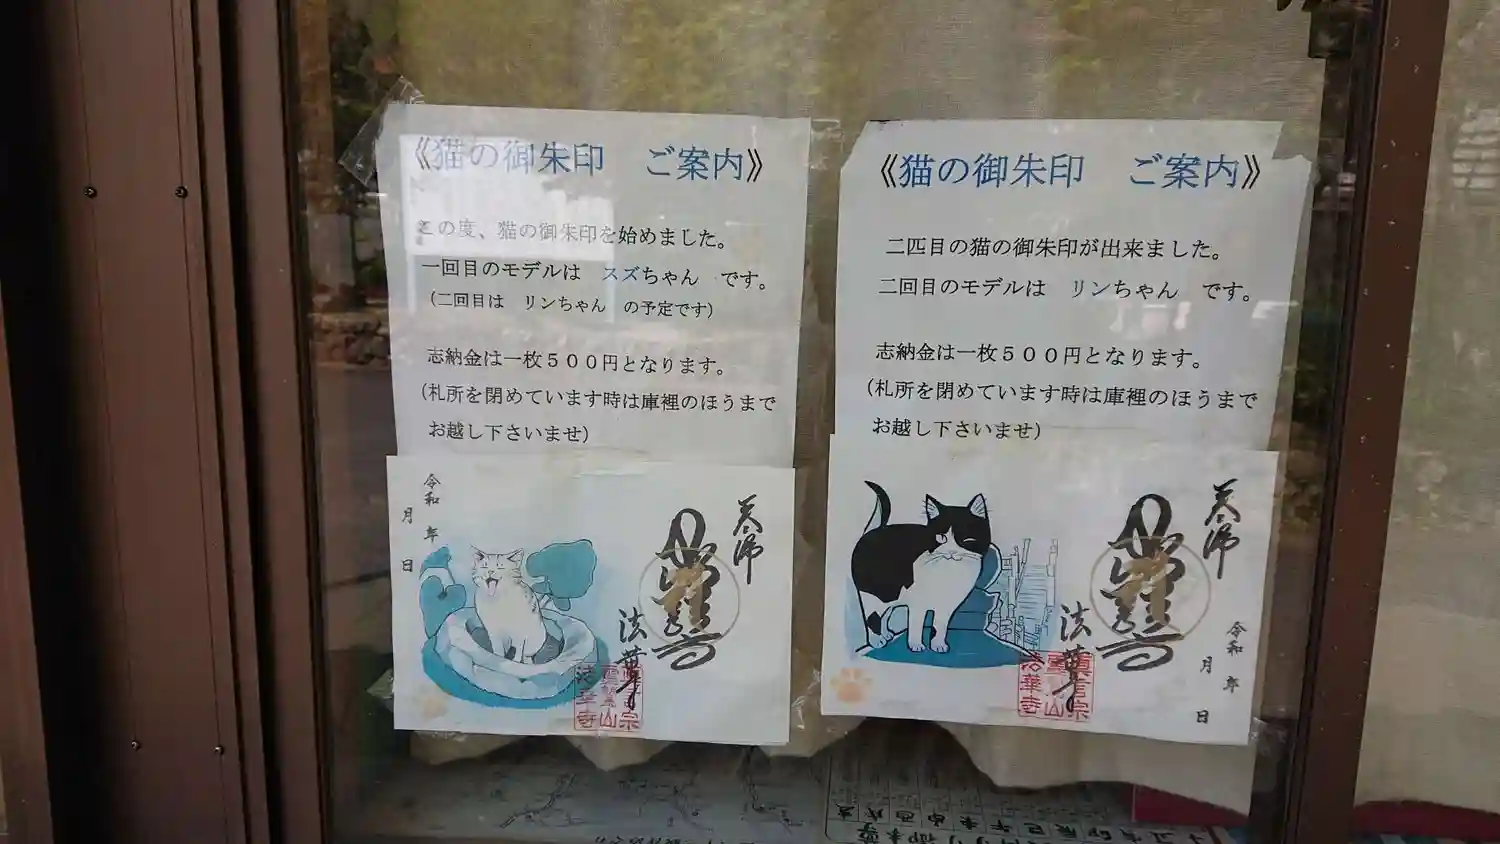 《猫の御朱印　ご案内》
この度、猫の御朱印を始めました。
一回目のモデルは　スズちゃん　です。
(二回目は　リンちゃん　の予定です)
志納金は一枚５００円となります。
(札所を閉めています時は庫裡のほうまで
お越し下さいませ)
令和　年
月　日
法華寺
《猫の御朱印　ご案内》
二匹目の猫の御朱印が出来ました。
二回目のモデルは　リンちゃん　です。
志納金は一枚５００円となります。
(札所を閉めています時は庫裡のほうまで
お越し下さいませ)
法華寺
令和　年
月　日